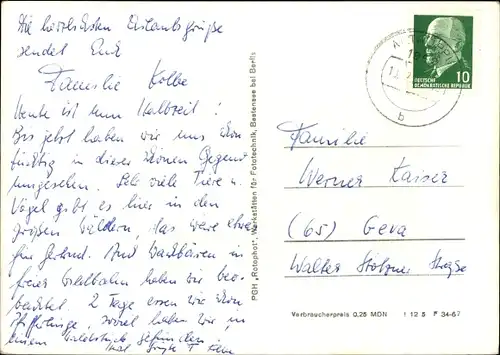 Die herzlichsten Urlaubsgrüße
sendet Euch
Familie Kolbe
Heute ist nun Halbzeit!
Bis jetzt haben wir uns schon
tüchtig in dieser schönen Gegend
umgesehen. Sehr viele Tiere u.
Vögel gibt es hier in den
großen Wäldern, das wäre etwas
für Gerhard. Auch Waschbären in
freier Wildbahn haben wir beo-
bachtet. 2 Tage essen wir schon
Pfifferlinge, soviel haben wir in
einem Waldstück gefunden
PGH „Rotophot“, Werkstätten für Fototechnik, Bestensee bei Berlin
DEUTSCHE
DEMOKRATISCHE REPUBLIK
10
b
Familie
Werner Kaiser
(65) Gera
Walter Stolzner Straße
Verbraucherpreis 0,25 MDN I 12 5 F 34-67